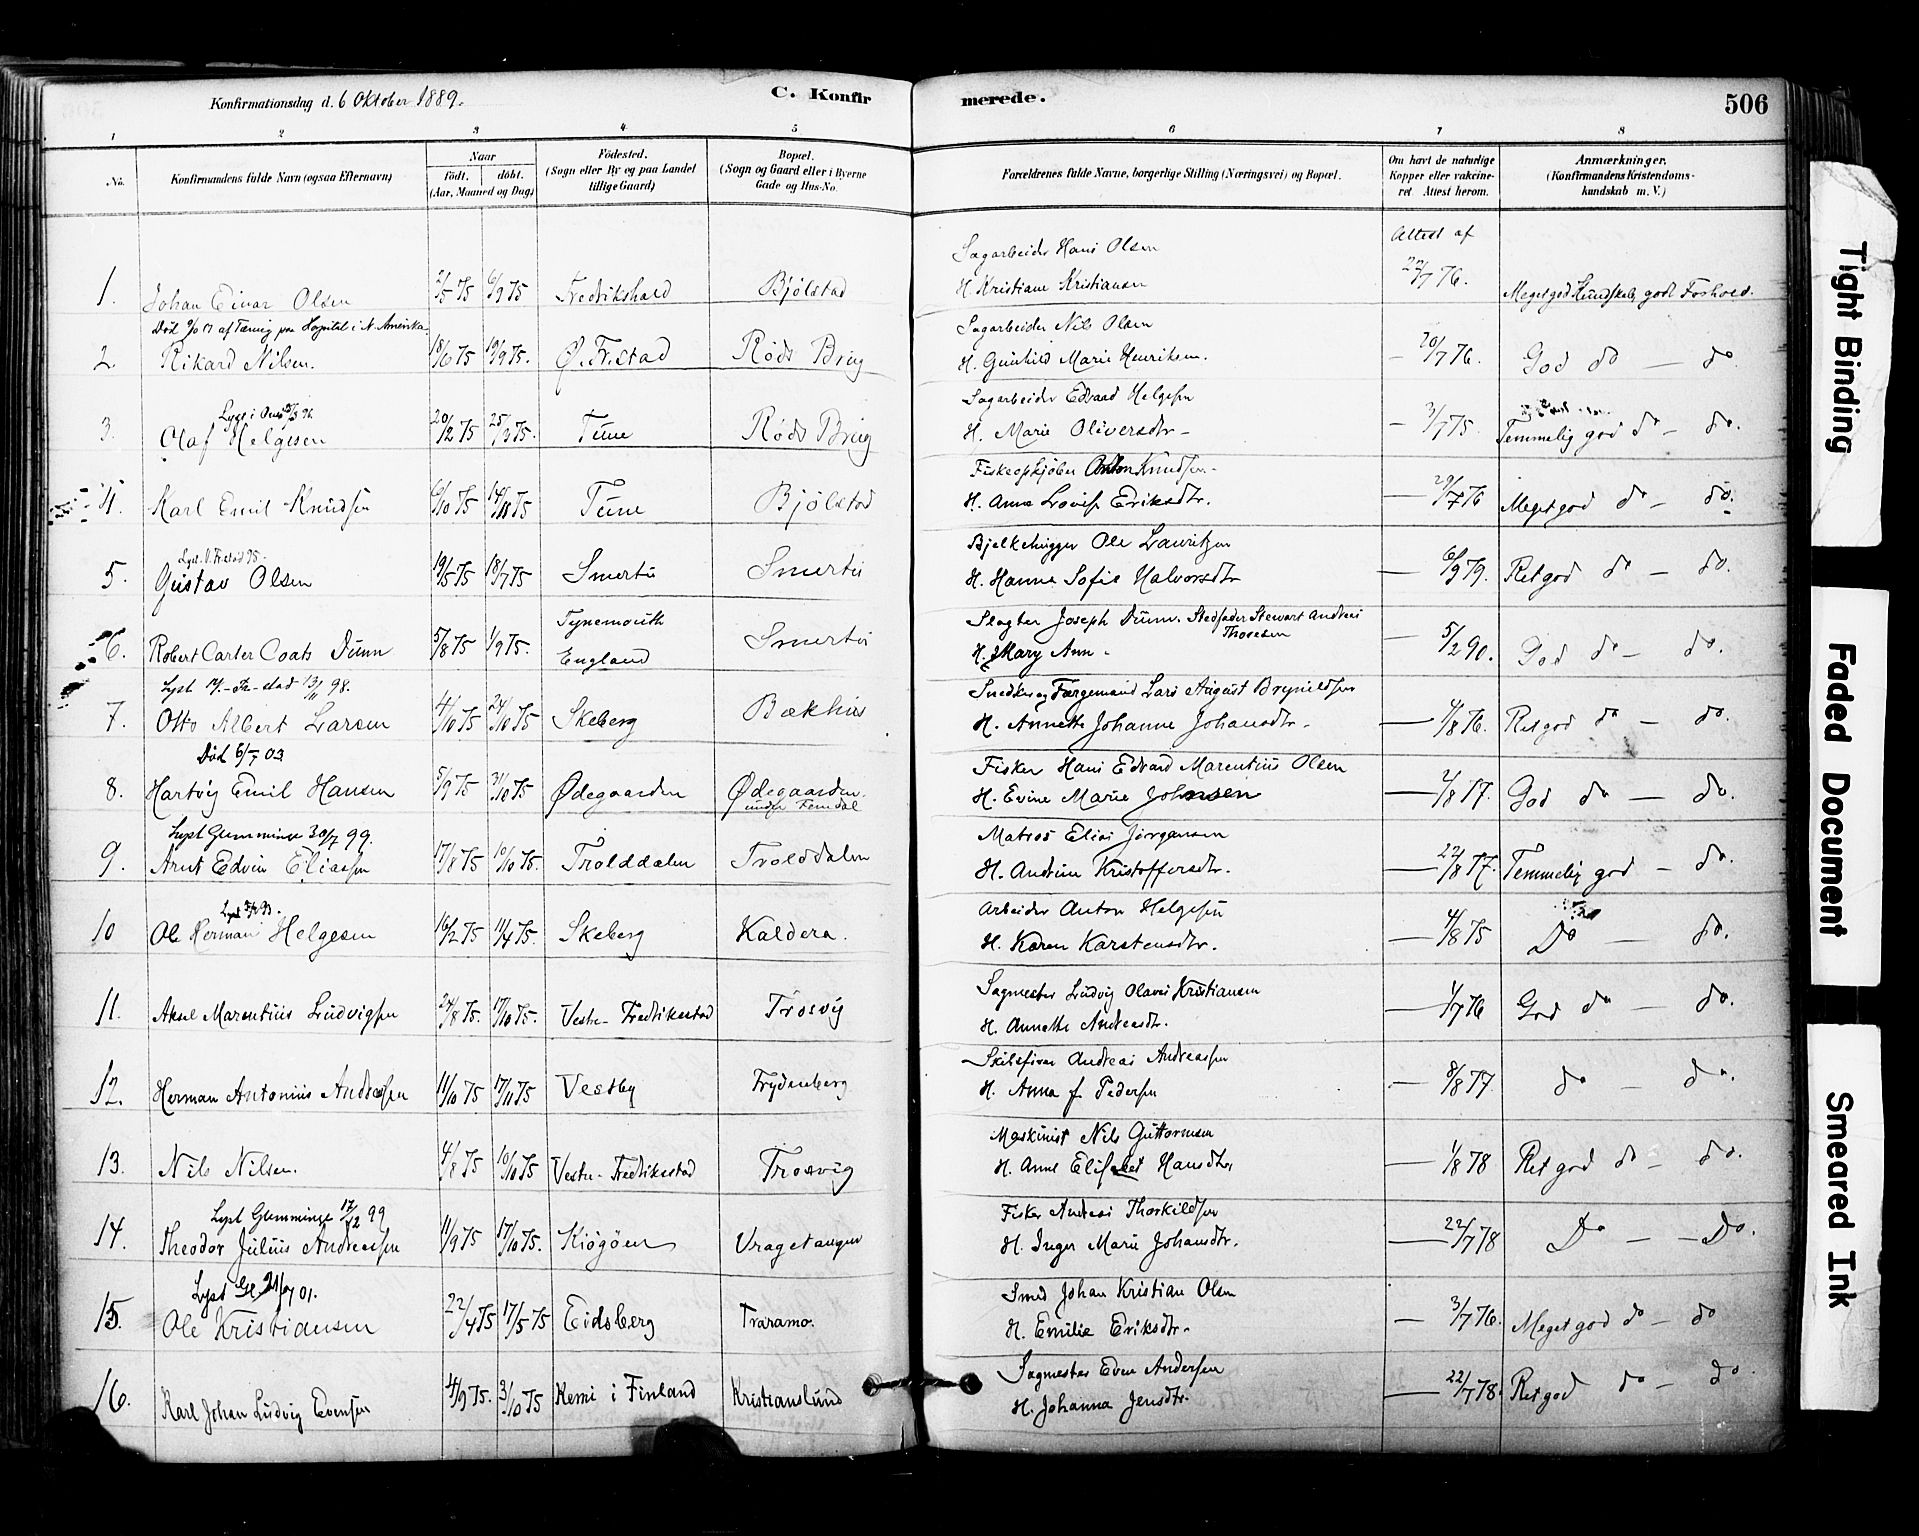 Konfirmationsdag d. 6 Oktober 1889.
C. Konfirmerede.
506
1 2 3 4 5 6 7 8
No.
Konfirmandens fulde Navn (ogsaa Efternavn)
Naar
födt. döbt.
(Aar, Maaned og Dag)
Födested.
(Sogn eller By og paa Landet
tillige Gaard)
Bopæl.
(Sogn og Gaard eller i Byerne
Gade og Hus-No.
Forældrenes fulde Navne, borgerlige Stilling (Næringsvei) og Bopæl.
Om havt de naturlige
Kopper eller vakcine-
ret Attest herom.
Anmærkninger.
(Konfirmandens Kristendoms-
kundskab m. V.)
Sagarbeider Hans Olsen
Attest af
1. Johan Einar Olsen 2/5 75 6/9 75 Fredrikshald Bjölstad H. Kristiane Kristiansen 22/7 76. Meget god Kundskab, godt Forhold.
Död af Tæring paa Hospital i N. Amerika
Sagarbeider Nils Olsen
2. Rikard Nilsen. 18/6 75 19/9 75. Ø. Fr.stad Röds Brug H. Gunhild Marie Henriksen. – 20/7 76. God do — do
Lyst i Ons
Sagarbeider Edvard Helgesen
3. Olaf Helgesen 20/2 75 25/3 75. Tune Röds Brug H. Marie Oliversdtr – – 3/7 75. Temmelig god do – do.
Fiskeopkjöber Anton Knudsen –
4. Karl Emil Knudsen 6/10 75 14/11 75 Tune Bjölstad H. Anne Lovise Eriksdtr. — 29/7 76 Meget god do – do.
Lyst. V. Fr.stad 95.
Bjelkehugger Ole Lauritzen
5. Gustav Olsen 19/5 75 18/7 75 Smertu Smertu H. Hanne Sofie Halvorsdtr — 6/9 79. Ret god do – do.
Tynemouth
Slagter Joseph Dunn. Stedfader Stewart Andreas
Thoresen
6. Robert Carter Coats Dunn 5/8 75 1/9 75. England Smertu H. Mary Ann – — 5/2 90. God do – do.
Lyst V. Fr-stad 13/11 98.
Snedker og Færgemand Lars August Brynildsen
7. Otto Albert Larsen 4/10 75 24/10 75 Skeberg Bækhus H. Annette Johanne Johansdtr – — 4/8 76. Ret god do – do.
Död 6/7 03
Fisker Hans Edvard Marentius Olsen
8. Hartvig Emil Hansen 5/9 75 31/10 75 Ødegaarden Ødegaarden. H. Evine Marie Johnsen — 2/8 77. God do — do.
under Femdal
Lyst Glemminge 30/7 99.
Matros Elias Jörgensen
9. Arnt Edvin Eliassen 17/8 75 10/10 75. Trolddalen Trolddalen H. Andrine Kristoffersdtr. — 22/8 77. Temmelig god – do.
Lyst
Arbeider Anton Helgesen
10 Ole Herman Helgesen 16/2 75 11/4 75. Skeberg Kaldera. H. Karen Karstensdtr. — 4/8 75 Do — do.
Sagmester Ludvig Olaves Kristiansen
11. Aksel Marentius Ludvigsen 24/8 75. 17/10 75. Vestre Fredrikstad Trosvig H. Annette Andreasdtr. — 1/7 76 God do – do.
Skibsförer Andreas Andreassen
12. Herman Antonius Andreassen 11/10 75 17/11 75 Vestby Frydenberg H. Anna f. Pedersen — 8/8 77. do – do.
Maskinist Nils Guttormsen
13. Nils Nilsen. 4/8 75 10/10 75 Vestre Fredrikstad Trosvig H. Anne Elisabet Hansdtr. — 1/8 78 Ret god do – do.
Lyst Glemminge 17/12 99
Fisker Andreas Thorkildsen
14. Theodor Julius Andreassen 11/9 75 17/10 75. Kiögöen Vragetangen H. Inger Marie Johansdtr. — 22/7 78 Do – – Do.
Lyst Gl. 01.
Smed Johan Kristian Olsen
15. Ole Kristiansen 22/4 75 17/5 75 Eidsberg Traramo. H. Emilie Eriksdtr. – 3/7 76. Meget god do – do
Sagmester Even Andersen
16. Karl Johan Ludvig Evensen 4/9 75. 3/10 75 Kemi i Finland Kristianslund H. Johanna Jensdtr. — 22/7 78. Ret god do – do
Tight Binding
Faded Document
Smeared Ink